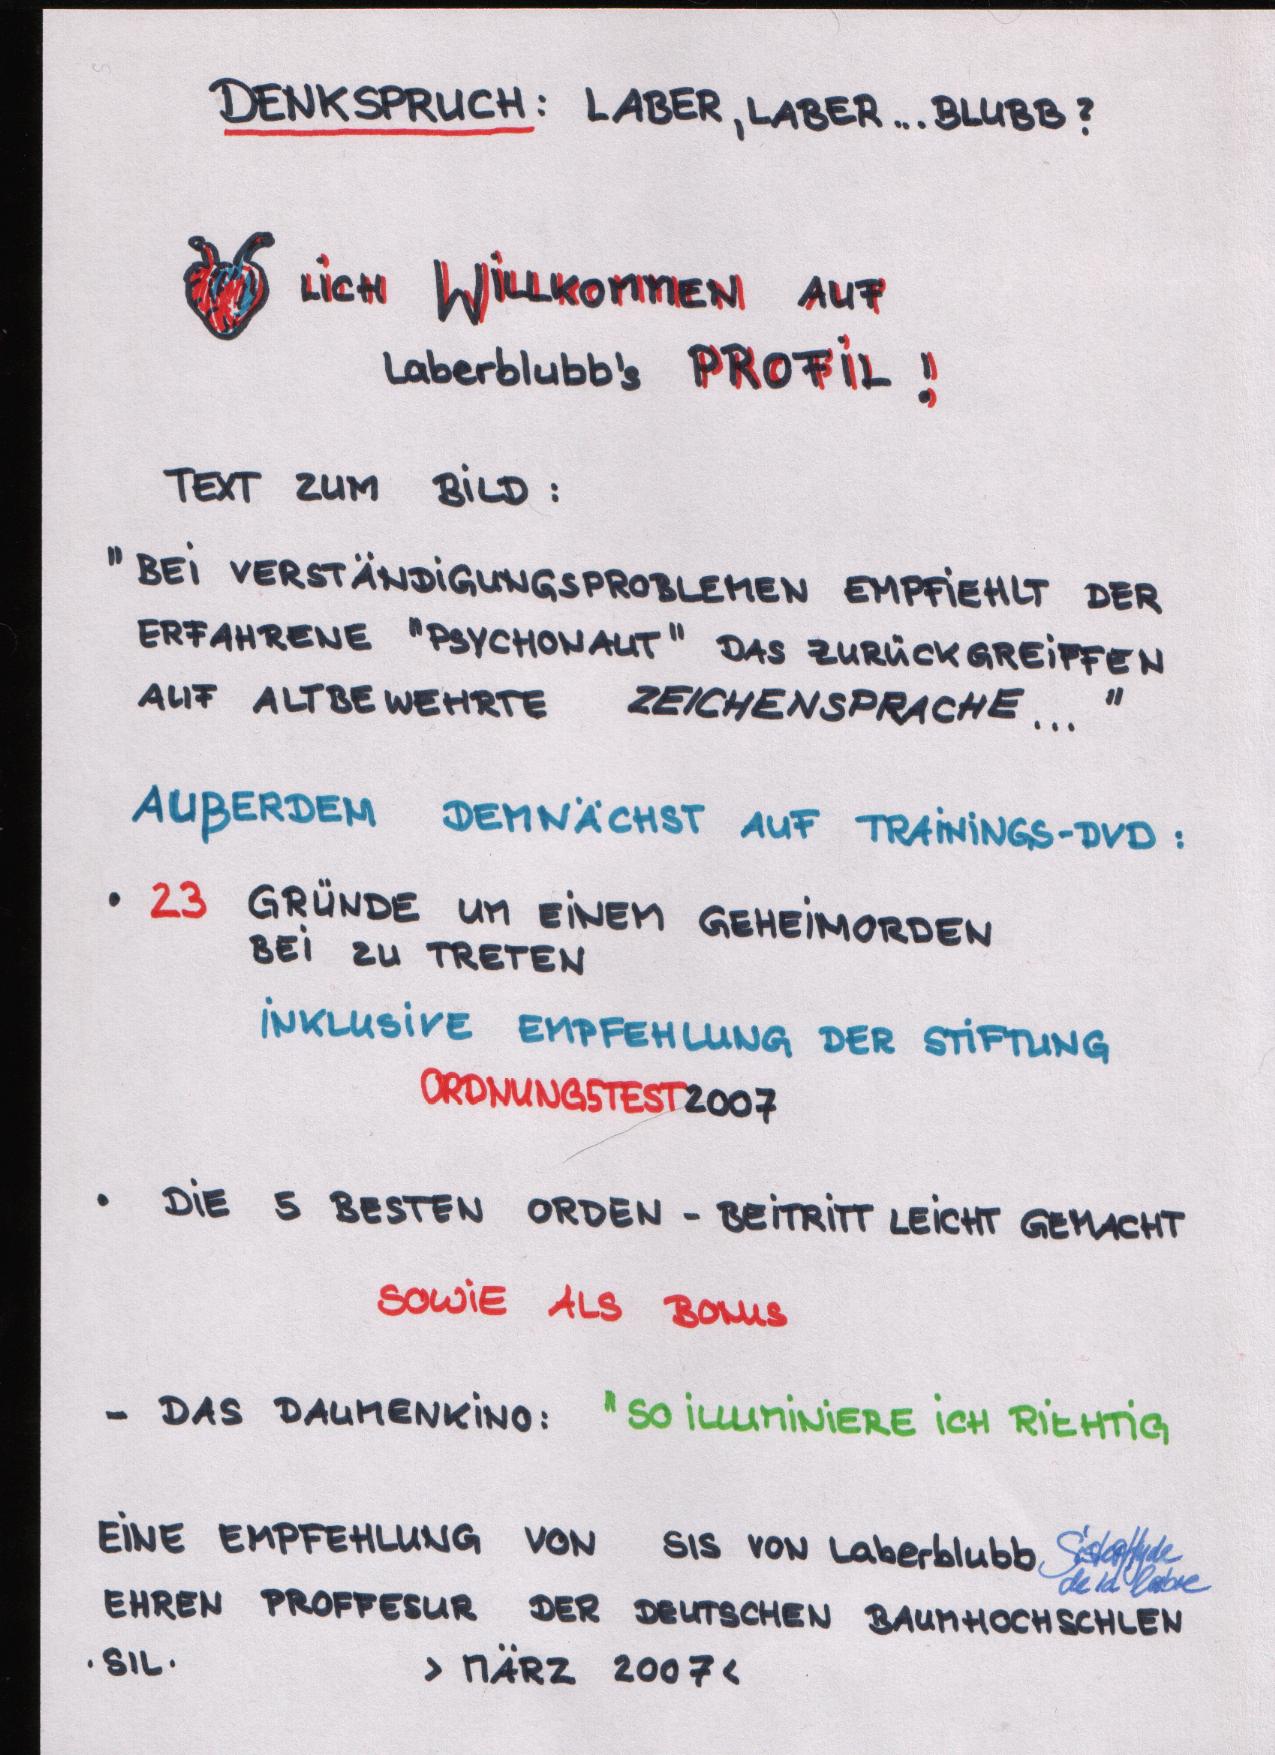 DENKSPRUCH: LABER, LABER... BLUBB?
LICH WILLKOMMEN AUF
Laberblubb's PROFIL!
TEXT ZUM BILD:
"BEI VERSTÄNDIGUNGSPROBLEMEN EMPFIEHLT DER
ERFAHRENE "PSYCHONAUT" DAS ZURÜCKGREIFFEN
AUF ALTBEWEHRTE ZEICHENSPRACHE..."
AUßERDEM DEMNÄCHST AUF TRAININGS-DVD:
• 23 GRÜNDE UM EINEM GEHEIMORDEN
BEI ZU TRETEN
INKLUSIVE EMPFEHLUNG DER STIFTUNG
ORDNUNGSTEST2007
• DIE 5 BESTEN ORDEN - BEITRITT LEICHT GEMACHT
SOWIE ALS BONUS
- DAS DAUMENKINO: "SO ILLUMINIERE ICH RICHTIG
EINE EMPFEHLUNG VON SIS VON Laberblubb
de la
EHREN PROFFESUR DER DEUTSCHEN BAUMHOCHSCHLEN
.SIL. > MÄRZ 2007 <